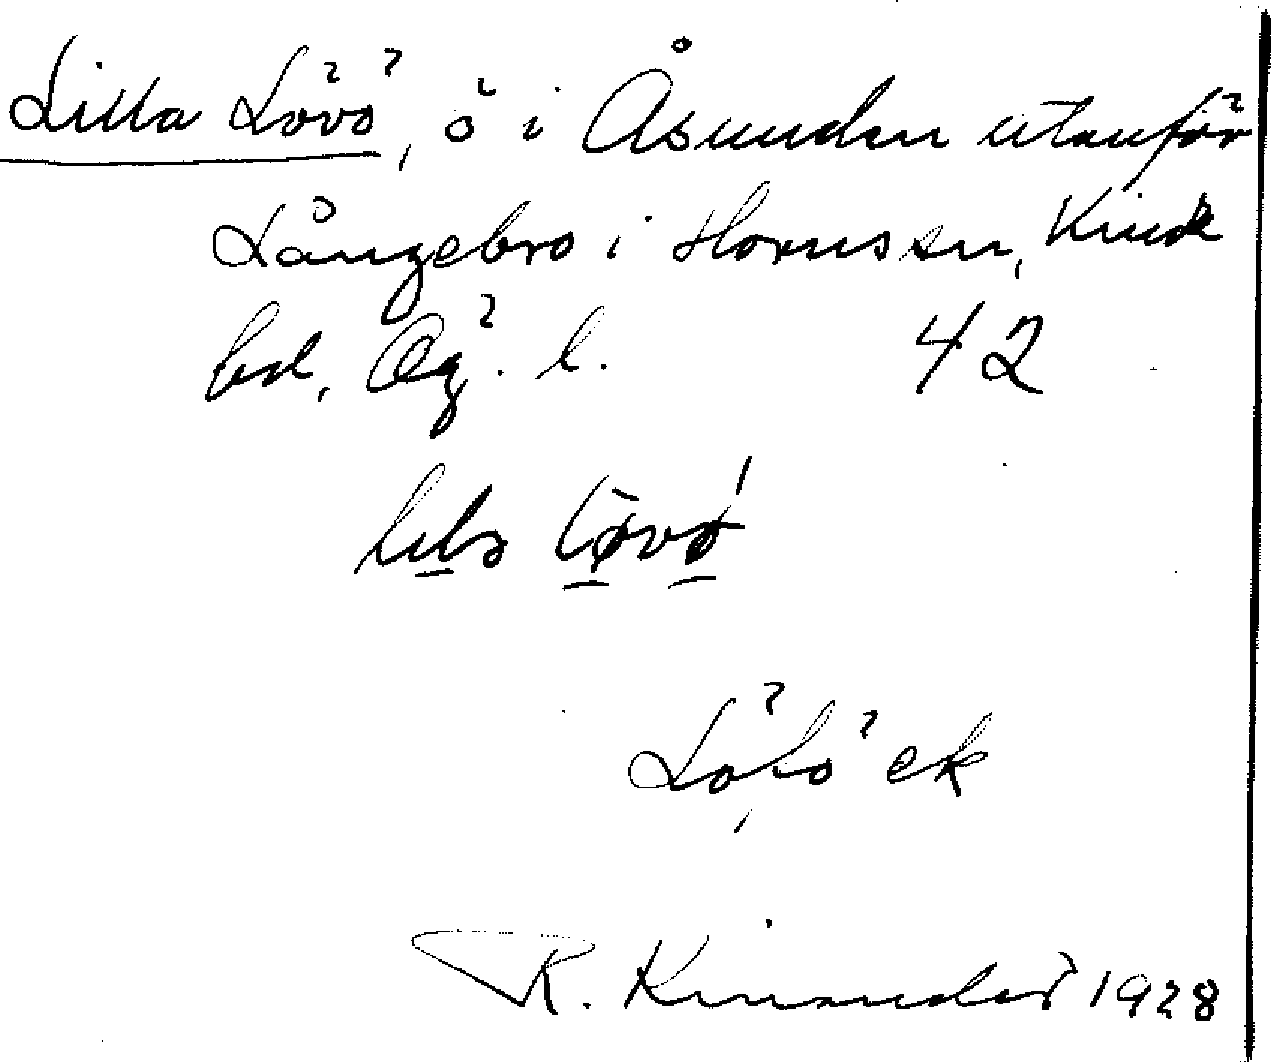 Lilla Lövö, ö i Åsunden utanför
Långebro i Horns sn, Kinds
hd, Ög. l. 42
lövö
R. Kinander 1928